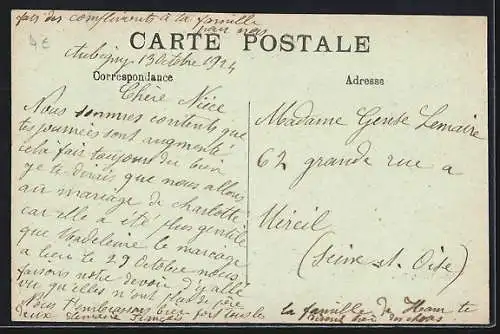 fais des compliments à ta famille
pour nous
4€
CARTE POSTALE
Aubigny 13 Octobre 1924
Correspondance
Adresse
Chère Nièce
Nous sommes contents que
tes journées sont augmenté
cela fait toujours du bien
je te dirais que nous allons
au mariage de Charlotte
car elle a été plus gentille
que Madeleine le mariage
a lieu le 29 Octobre nous
faisons notre devoir d'y allé
vu qu'elles n'ont plus de père
Nous t'embrassons bien fort tous les
deux Lemaire
Madame Lemaire
62 grande rue a
Méréil
(Seine et Oise)
la famille de